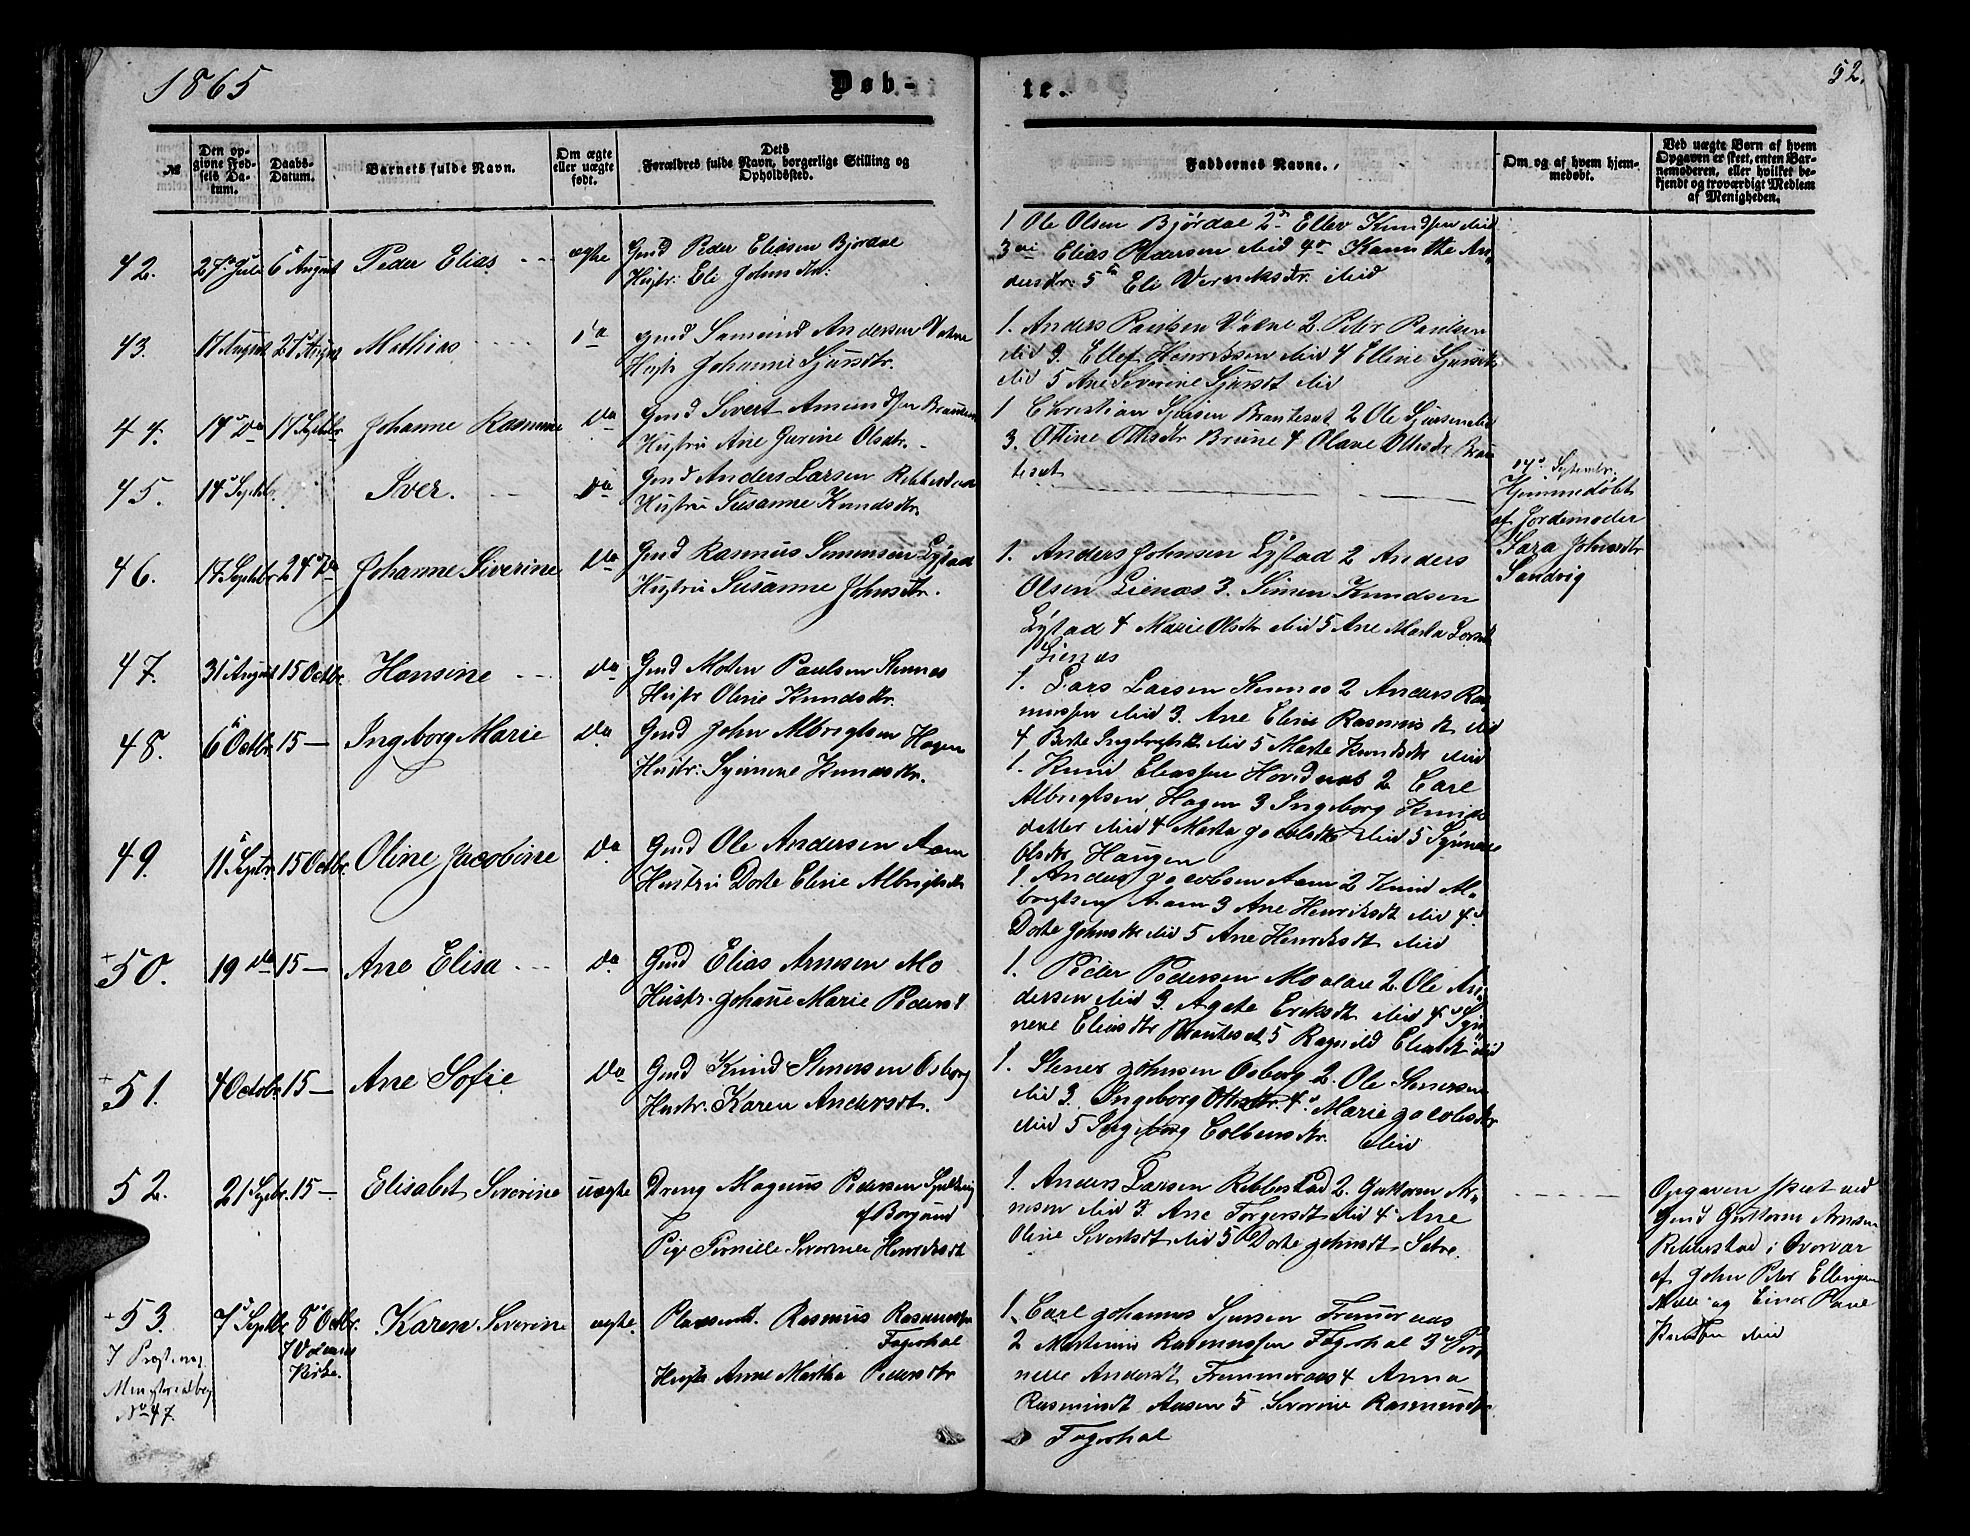 1865
Døb-
te.
52.
№
Den op-
givne Fød-
sels Da-
tum.
Daabs-
Datum.
Barnets fulde Navn.
Om ægte
eller uægte
født.
Dets
Forældres fulde Navn, borgerlige Stilling og
Opholdssted.
Faddernes Navne.
Om og af hvem hjem-
medøbt.
Ved uægte Børn af hvem
Opgaven er skeet, enten Bar-
nemoderen, eller hvilket be-
kjendt og troværdigt Medlem
af Menigheden.
42. 27 Juli 6 August Peder Elias ægte Gmd Peder Eliasen Bjørdal
Hustr: Eli Johnsdtr:
1 Ole Olsen Bjørdal 2 Ellev Knudsen ibid
3 Elias Pedersen ibid 4 An-
dersdtr: 5 Eli ibid
43. 17 August 27 August Mathias Da Gmd Samund Andersen Vatne
Hustr Johanne Sjursdtr.
1. Anders Paulsen Vatne 2. Peter Paulsen
ibid 3. Ellef Henriksen ibid 4 Elline Sjursdtr
ibid 5 Ane Severine Sjursdt ibid
44. 14 Da 17 Septbr. Johanne Rasmine Da Gmd Sivert Amundsen
Hustru Ane Gurine Olsdtr.
1 Christian Sjursen Brauteset 2 Ole Sjursen ibid
3. Ottine Ottisdtr Brune 4 Olave Ottisdtr Brau-
teset
45. 14 Septbr. Iver. Da Gmd Anders Larsen Rebbestad
Hustru Susanne Knudsdtr.
14 September.
Hjemmedøbt
af Jordemoder
Sara Johnsdtr
Sandvig
46. 17 Septbr 24 Da Johanne Siverine Da Gmd Rasmus Simensen Lystad
Hustru Susanne Johnsdtr.
1. Anders Johnsen Lystad 2 Anders
Olsen Lienæs 3. Simen Knudsen
Lystad 4 Marie Olsdtr ibid 5 Ane Marta
Lienæs
47. 31 August 15 Octbr. Hansine Da Gmd Paulsen Stennes
Hustr Oline Knudsdtr.
1. Lars Larsen Stennes 2 Anders Ras-
mussen ibid 3. Ane Eline Rasmusdt ibid
4 Berte ibid 5 Marte Knudsdtr ibid
48. 6 Octbr. 15 — Ingeborg Marie Da Gmd John Albregtsen Hagen
Hustr: Synneve Knudsdtr.
1. Knud Eliassen 2 Carl
Albregtsen Hagen 3 Ingeborg Knuds-
datter ibid 4 Marta Jacobsdtr ibid 5 Synneve
Olsdtr Haugen
49. 11 Septbr. 15 Octbr. Oline Jacobine Da Gmd Ole Andersen Aam
Hustru Dorte Eline Albrigtsdtr
1. Anders Jacobsen Aam 2 Knud Al-
bregtsen Aam 3 Ane Henriksdt ibid 4
Dorte Johnsdtr ibid 5 Ane Henriksdt ibid
+50. 19 Da 15 — Ane Elisa Da Gmd Elias Arnesen Mo
Hustr. Johane Marie Pedersdt
1. Peder Pedersen 2. Ole An-
dersen ibid 3 Agate Eriksdt ibid 4 Syn-
neve Eliasdtr Brauteset 5 Ragnild Eliasdt ibid
+51. 4 Octbr. 15 — Ane Sofie Da Gmd Knud Stenersen Osborg
Hustr. Karen Andersdt.
1. Stener Johnsen Osborg 2. Ole Stenersen
ibid 3. Ingeborg Ottisdtr. 4. Marie Jacobsdtr
ibid 5 Ingeborg Colbensdtr. ibid
52. 21 Septbr. 15 — Elisabet Severine uægte Dreng Magnus Pedersen
af Borgund
Pige Pernille Severine Henriksdt
1. Anders Larsen Rebbestad 2. Guttorm Ar-
nesen ibid 3. Ane Torgersdt ibid 4 Ane
Oline Sivertsdt ibid 5 Dorte Johnsdt Sætre.
Opgaven skeet ved
Gmd Guttorm Arnesen
Rebbestad i Overvær
af John Peter Ellingsen
og Einer
Knudsen ibid
+53. 7 Septbr. 8 Octbr. Karen Severine ægte. Pladsemd. Rasmus Rasmussen
Fagerhol
Hustr Anne Martha Pedersdtr
I Voldens
Kirke.
I Præstens
Ministerialbog
No 47.
1. Carl Johannes Sjursen
2 Martinus Rasmussen Fagerhol 3 Per-
nelle Andersdt 4 Anna
Rasmusdt Aasen 5. Severine Rasmusdt
Fagerhol